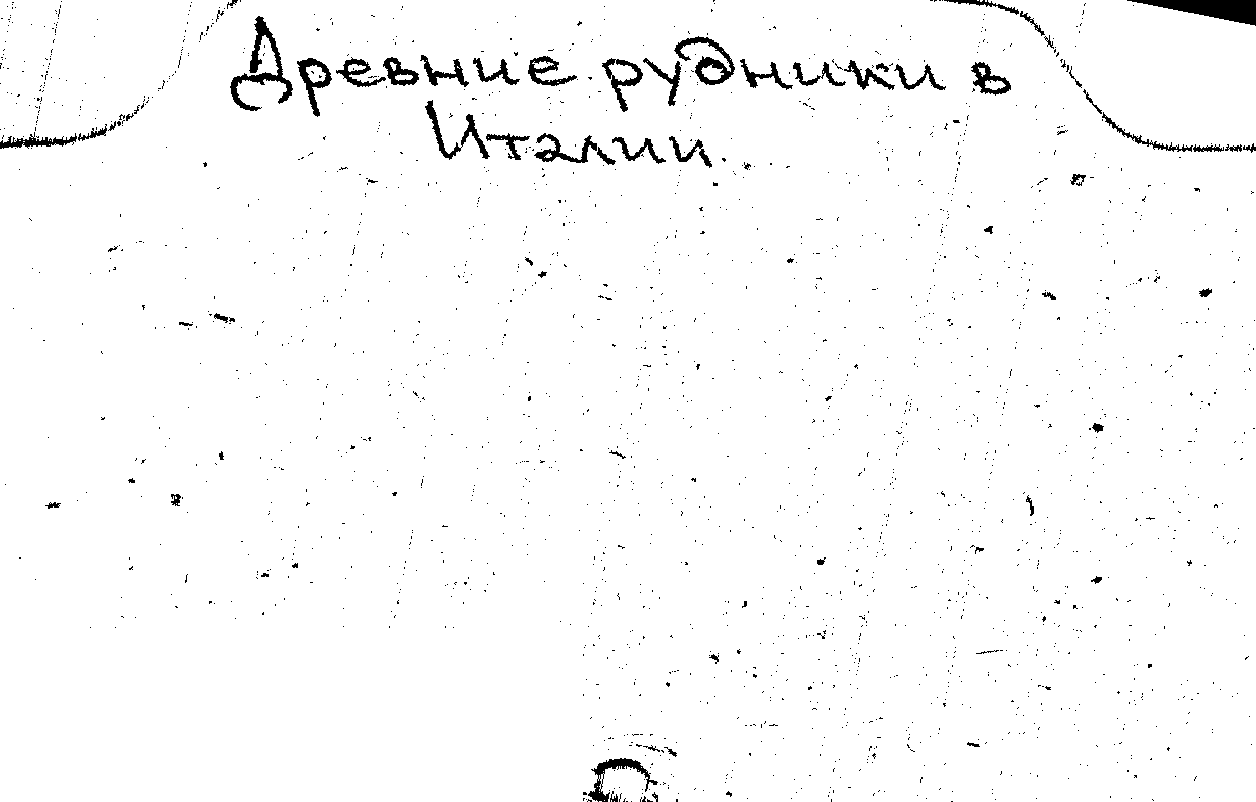 Древние рудники в
Италии.